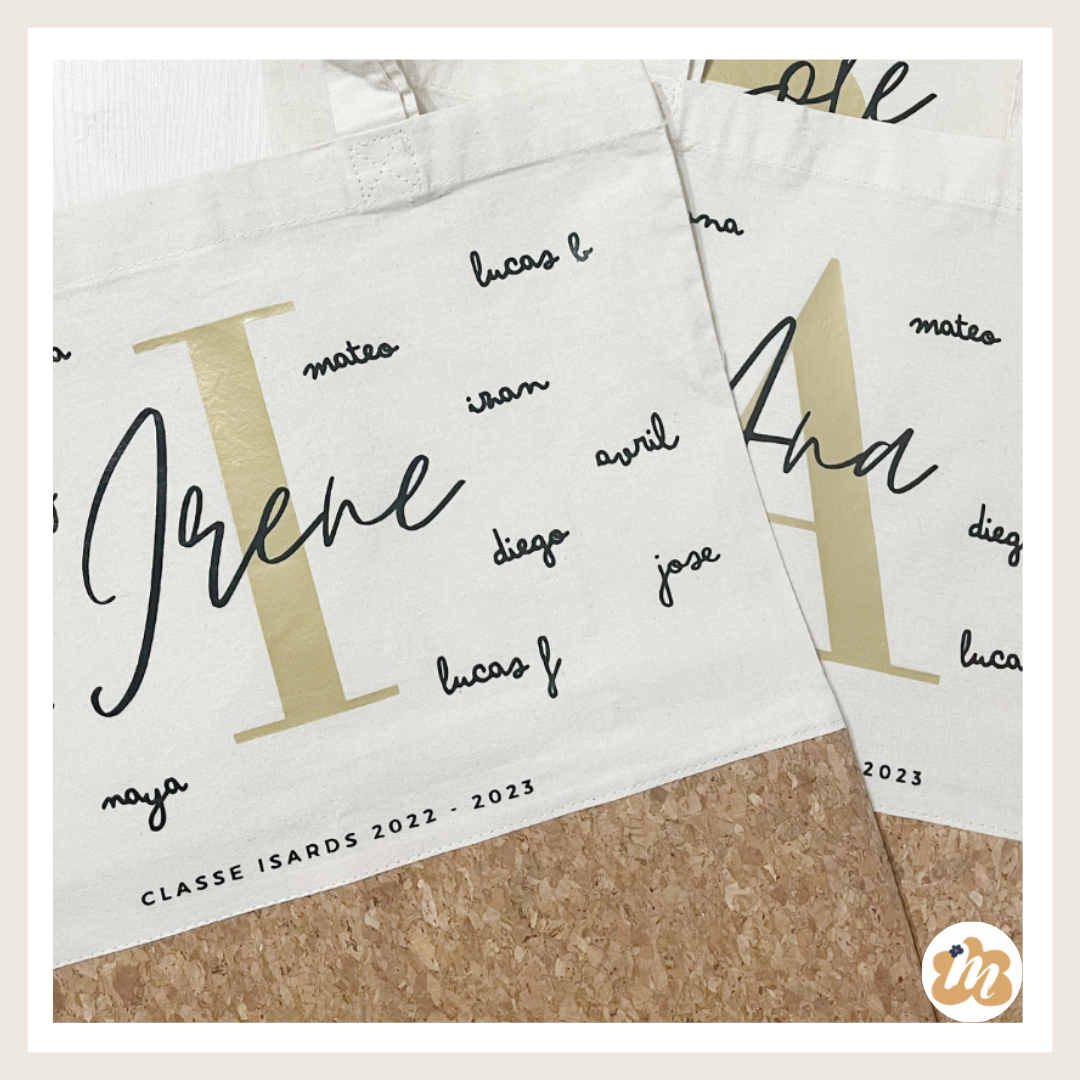 lucas b
mateo
izan
avril
I
Irene
diego
jose
lucas f
maya
CLASSE ISARDS 2022 - 2023
mateo
A
Ana
2023
m